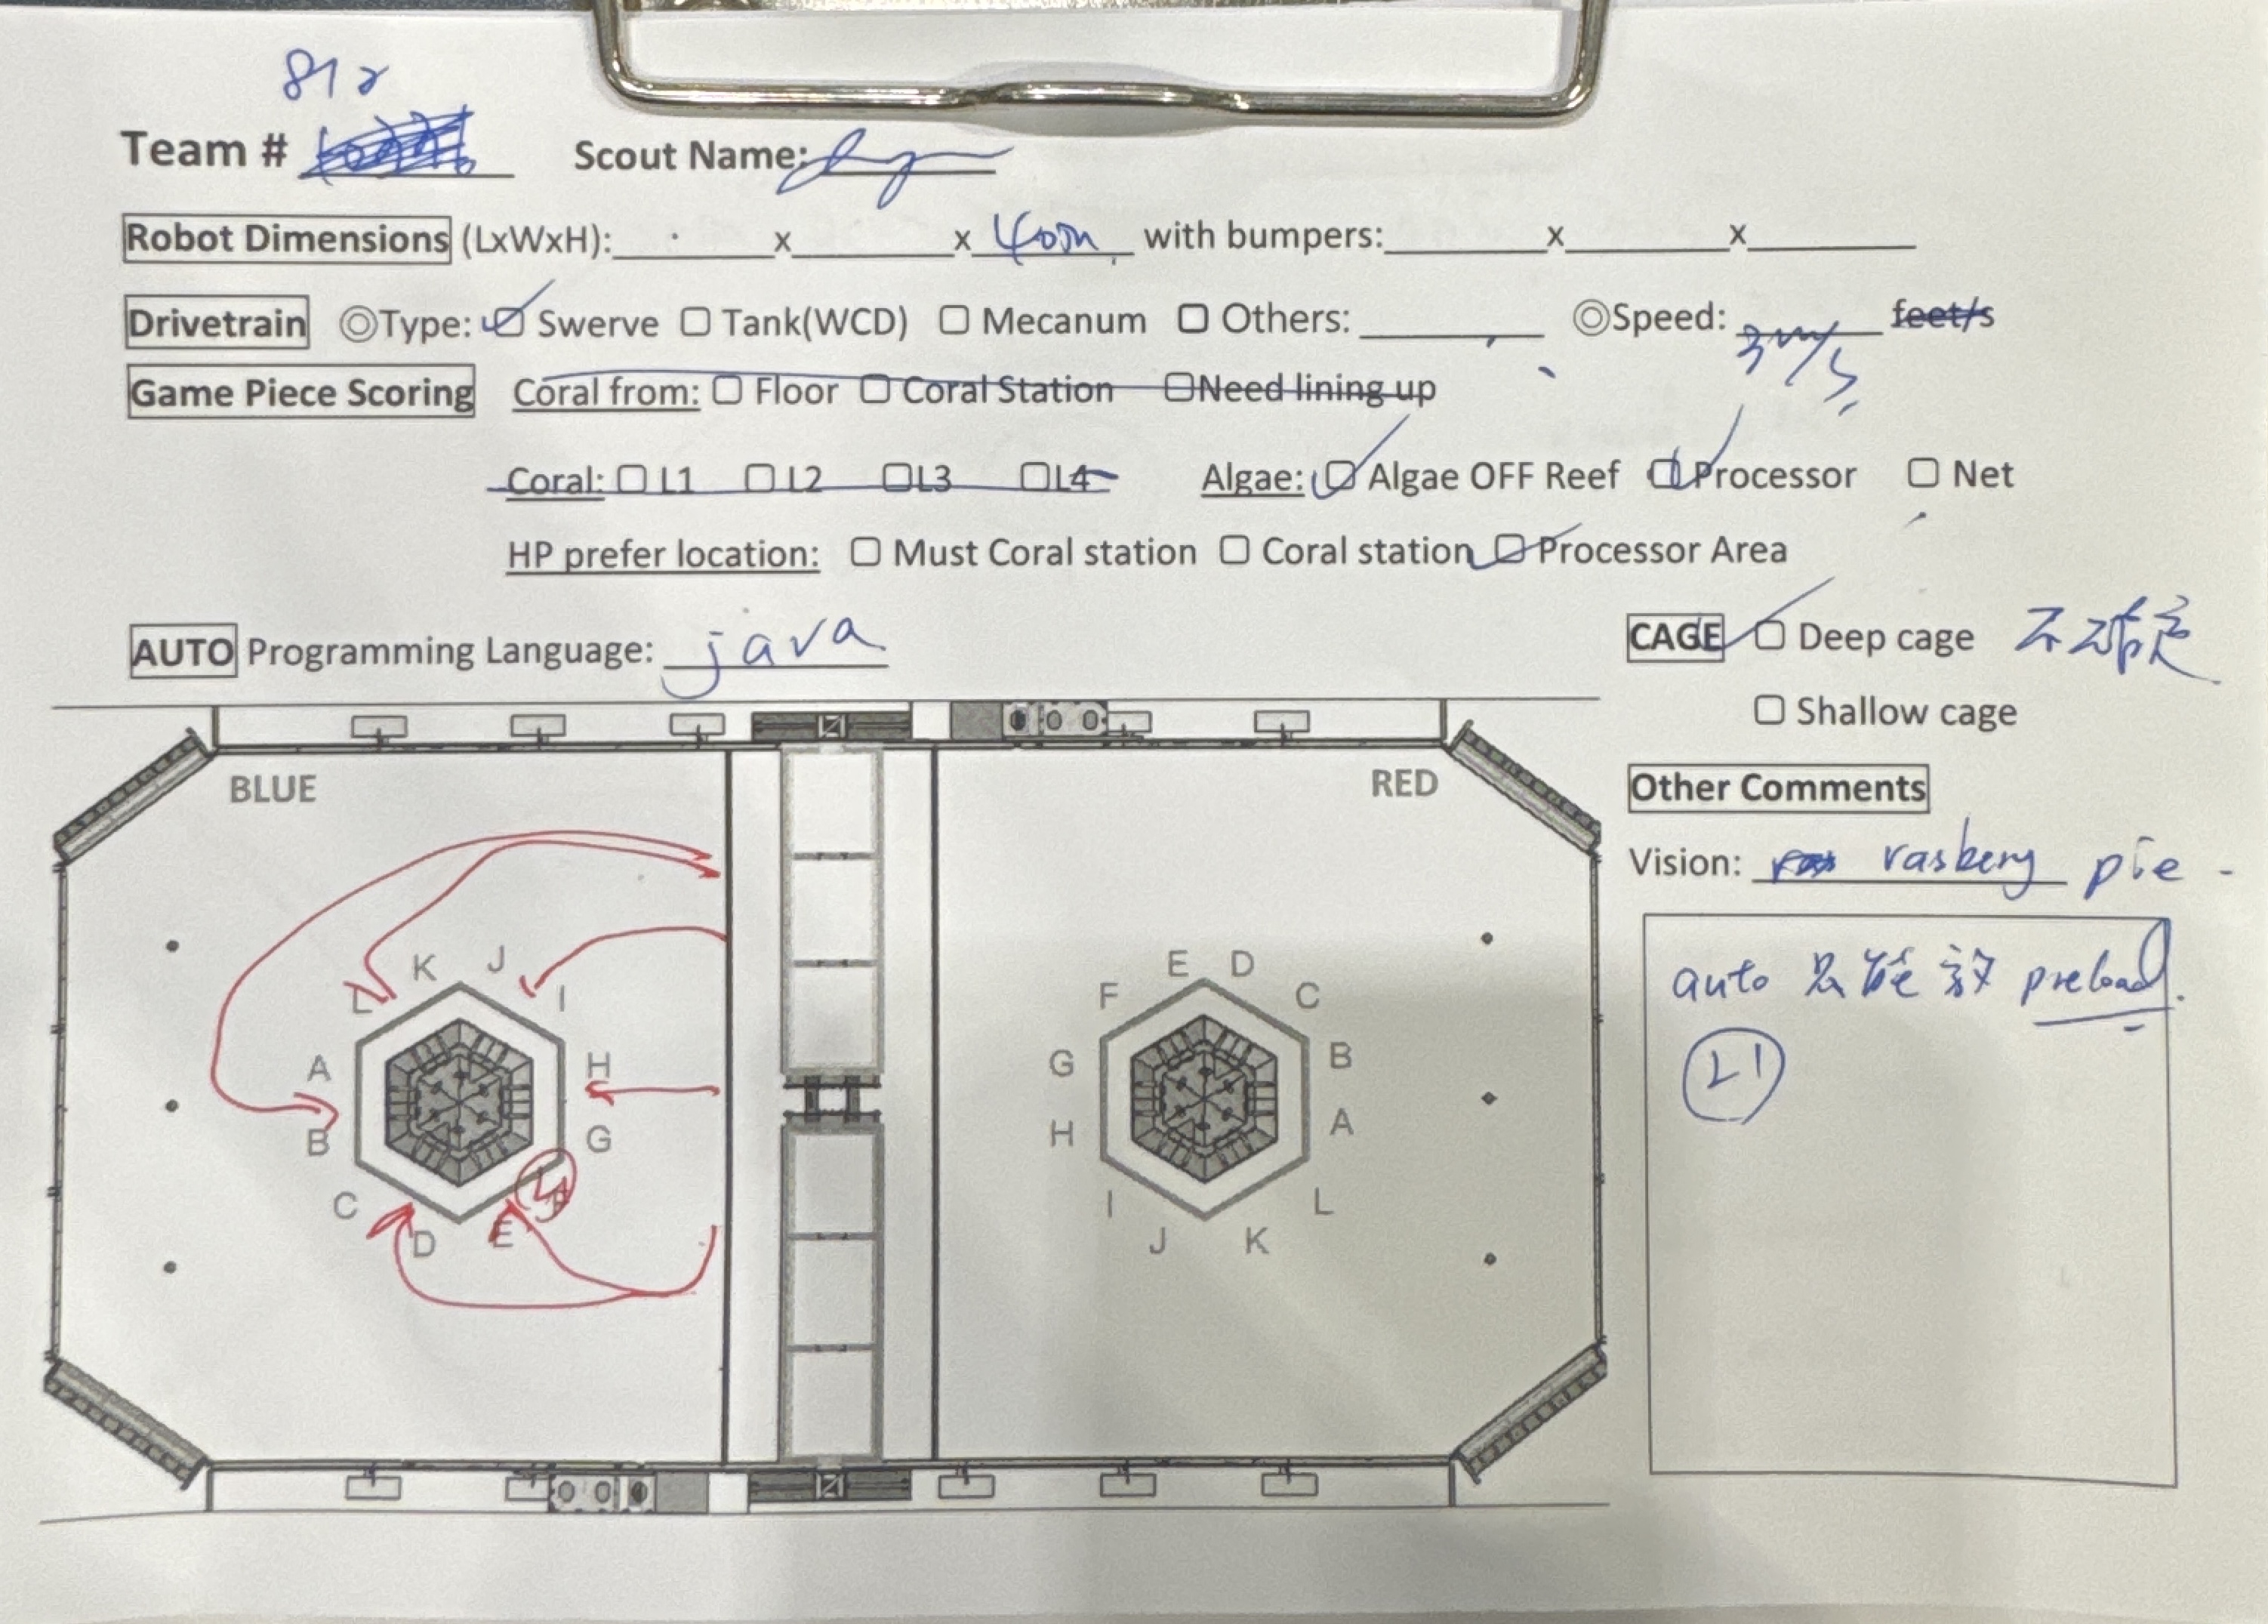 812
Team # Scout Name:
Robot Dimensions (LxWxH): x x with bumpers: x x
Drivetrain ◎Type: ☑ Swerve ☐ Tank(WCD) ☐ Mecanum ☐ Others: ◎Speed: 3m/s feet/s
Game Piece Scoring Coral from: ☐ Floor ☐ Coral Station ☐ Need lining up
Coral: ☐ L1 ☐ L2 ☐ L3 ☐ L4 Algae: ☑ Algae OFF Reef ☑ Processor ☐ Net
HP prefer location: ☐ Must Coral station ☐ Coral station ☑ Processor Area
AUTO Programming Language: java
CAGE ☑ Deep cage 不確定
☐ Shallow cage
BLUE
RED
Other Comments
Vision: rasberry pie
auto 只能放 preload.
L1
K J
L I
A H
B G
C
D E
E D
F C
G B
H A
I L
J K